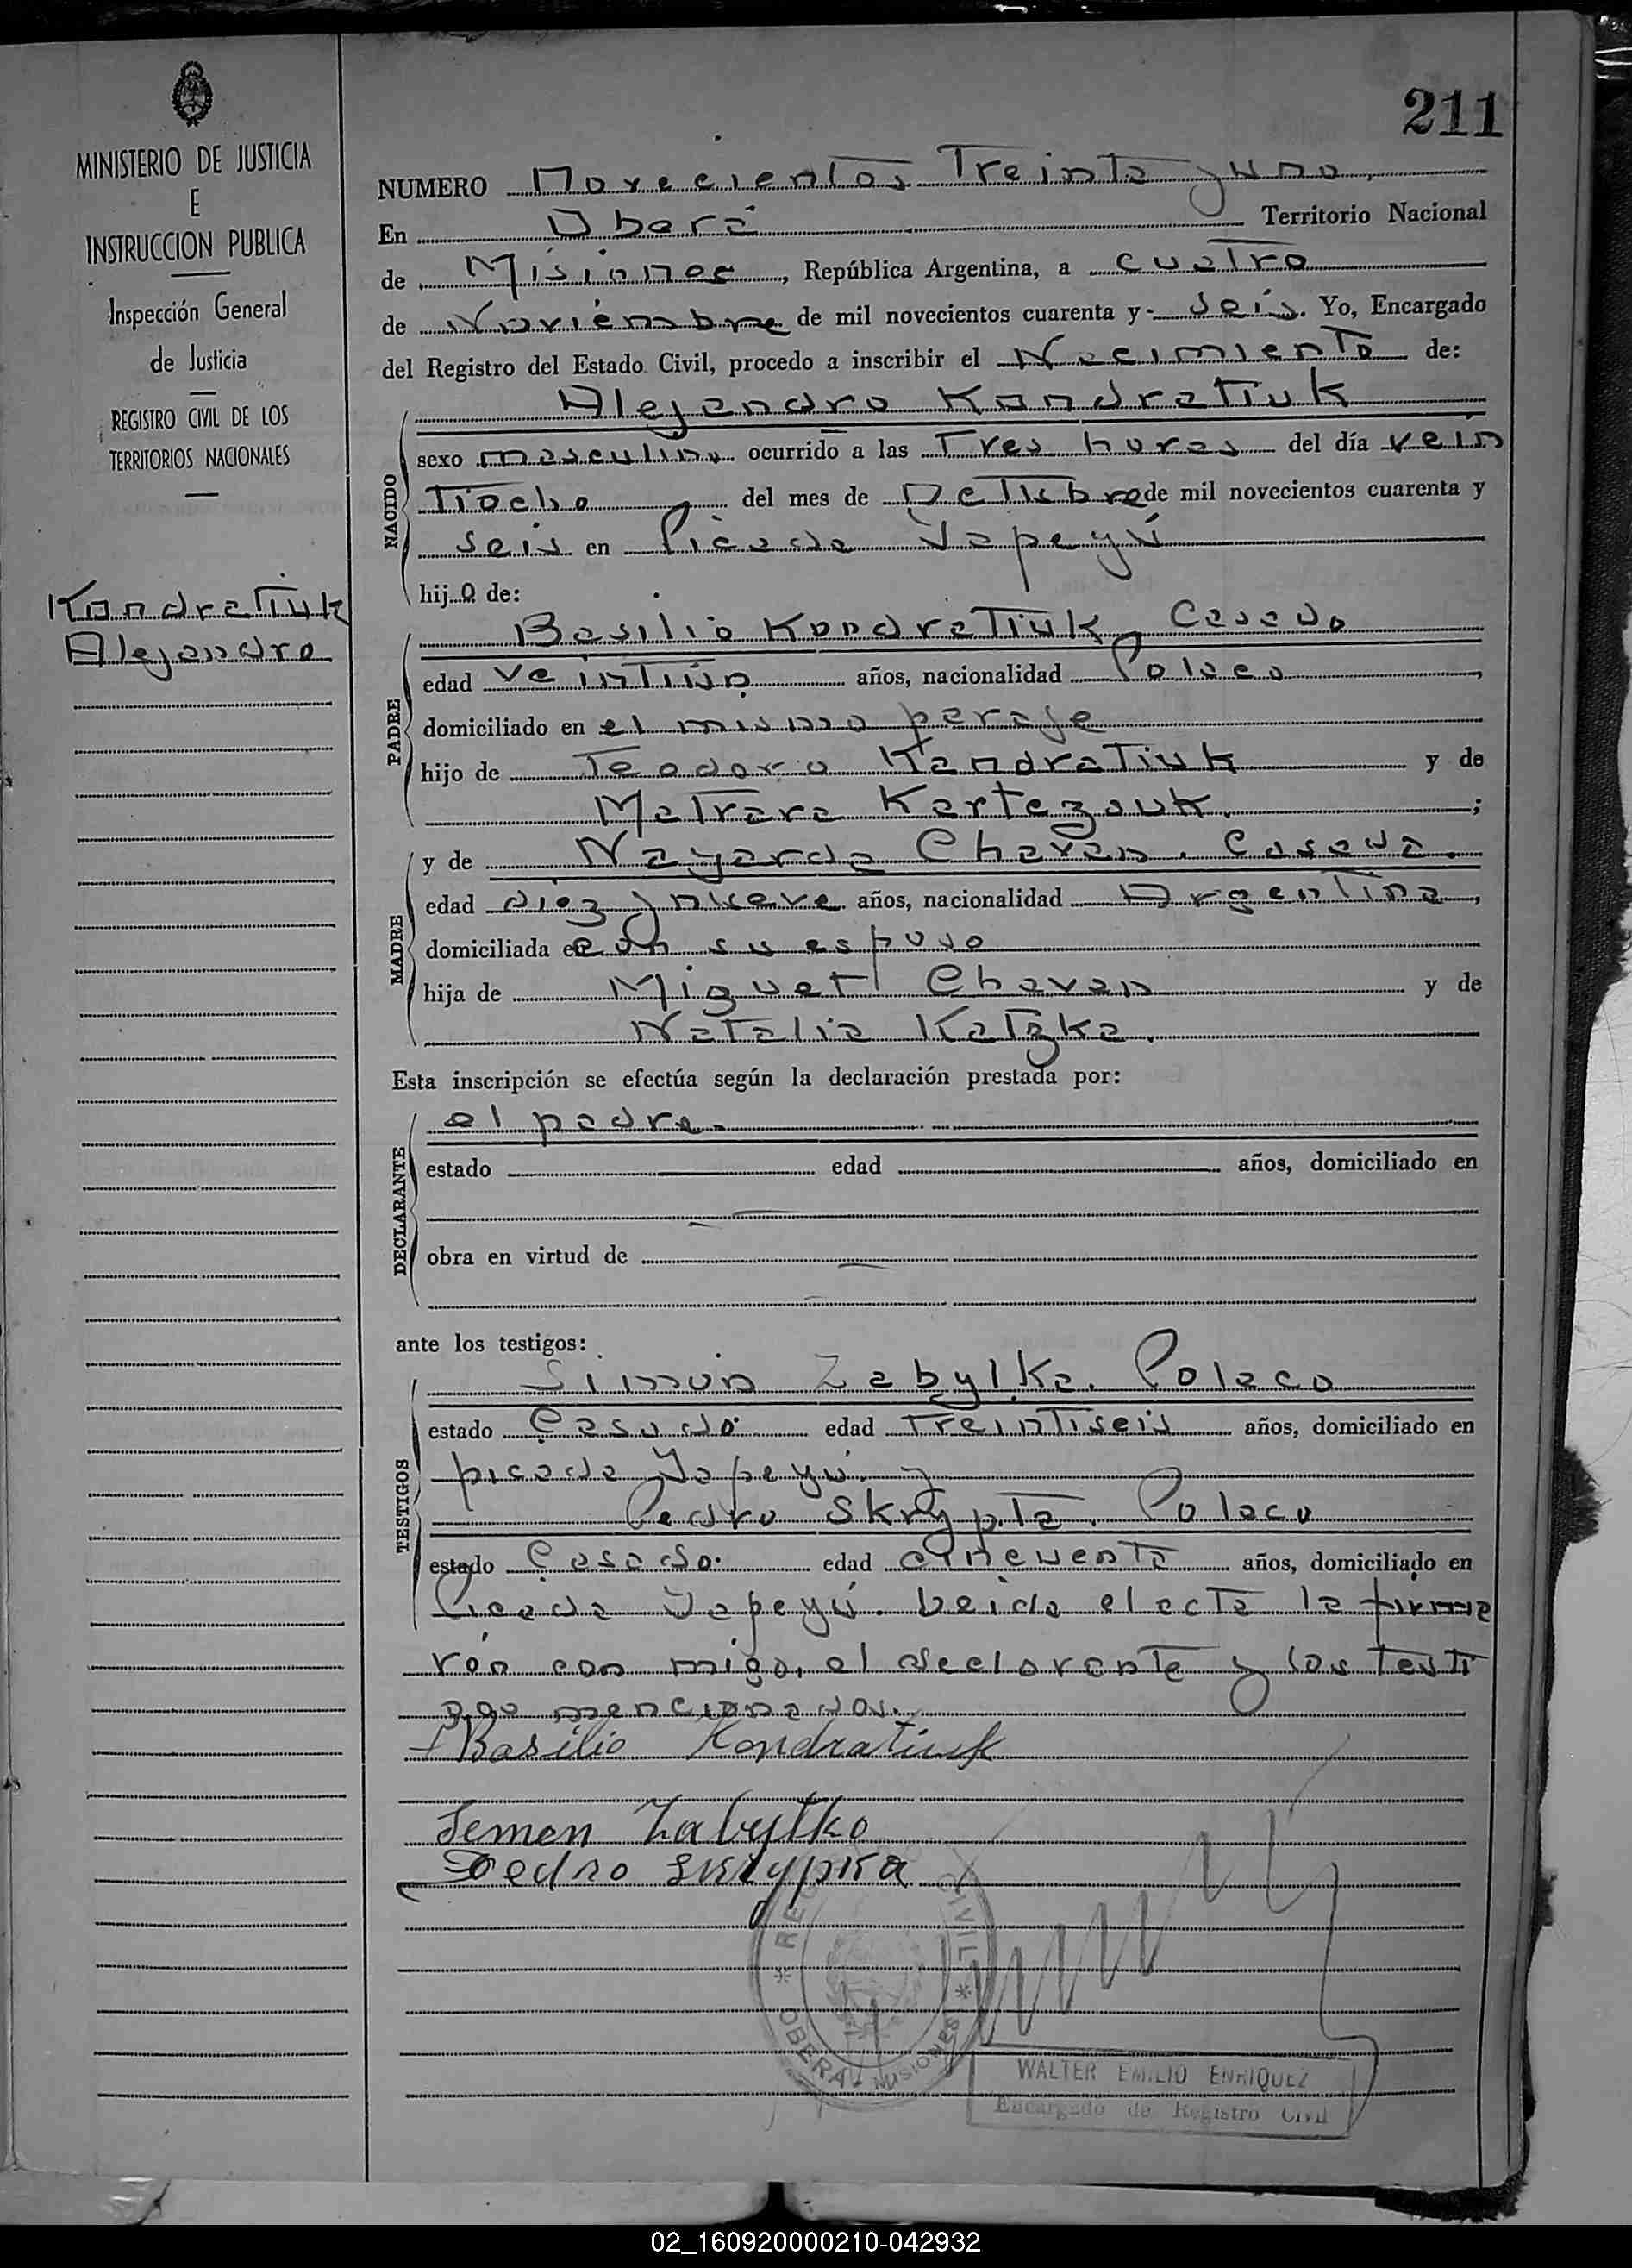 211
MINISTERIO DE JUSTICIA
E
INSTRUCCION PUBLICA
Inspección General
de Justicia
REGISTRO CIVIL DE LOS
TERRITORIOS NACIONALES
Kondratiuk
Alejandro
NUMERO Novecientos Treinta y uno.
En Oberá Territorio Nacional
de Misiones, República Argentina, a cuatro
de Noviembre de mil novecientos cuarenta y seis. Yo, Encargado
del Registro del Estado Civil, procedo a inscribir el Nacimiento de:
NACIDO
Alejandro Kondratiuk
sexo masculino ocurrido a las Tres horas del día vein
tiocho del mes de Octubre de mil novecientos cuarenta y
seis en Picada Yapeyú
hijo de:
PADRE
Basilio Kondratiuk, Casado
edad veintiún años, nacionalidad Polaco
domiciliado en el mismo paraje
hijo de Teodoro Kondratiuk y de
Matrara Kartezouk.;
MADRE
y de Nayarda Chavan. Casada.
edad diez y nueve años, nacionalidad Argentina,
domiciliada en con su esposo
hija de Miguel Chavan y de
Natalia Katzka.
Esta inscripción se efectúa según la declaración prestada por:
DECLARANTE
el padre.
estado edad años, domiciliado en
obra en virtud de
ante los testigos:
TESTIGOS
Simón Zabylka. Polaco
estado Casado. edad Treintiseis años, domiciliado en
picada Yapeyú. y
Pedro Skrypta. Polaco
estado Casado. edad cincuenta años, domiciliado en
Picada Yapeyú. Leida el acta la firma
ron con migo, el declarante y los testi
gos mencionados.
Basilio Kondratiuk
Semen Zabytko
Pedro Skrypka
REG CIVIL * OBERA - MISIONES *
WALTER EMILIO ENRIQUEZ
Encargado de Registro Civil
02_160920000210-042932